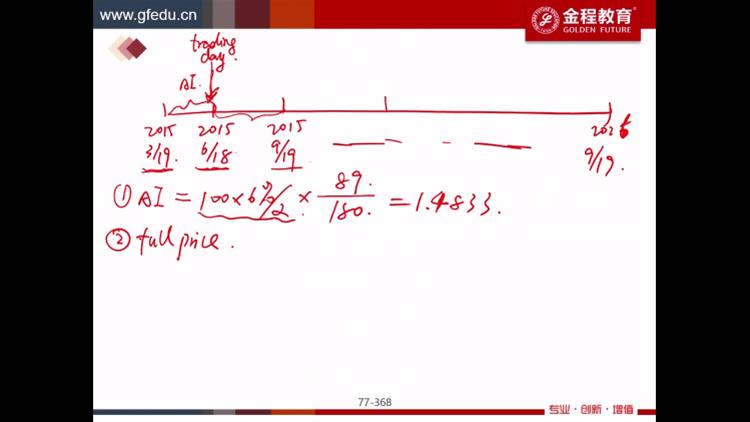 www.gfedu.cn
金程教育
GOLDEN FUTURE
trading
day.
AI.
2015 2015 2015
3/19. 6/18. 9/19.
9/19.
① AI = 100×6%/2 × 89./180. = 1.4833.
② full price.
77-368
专业·创新·增值